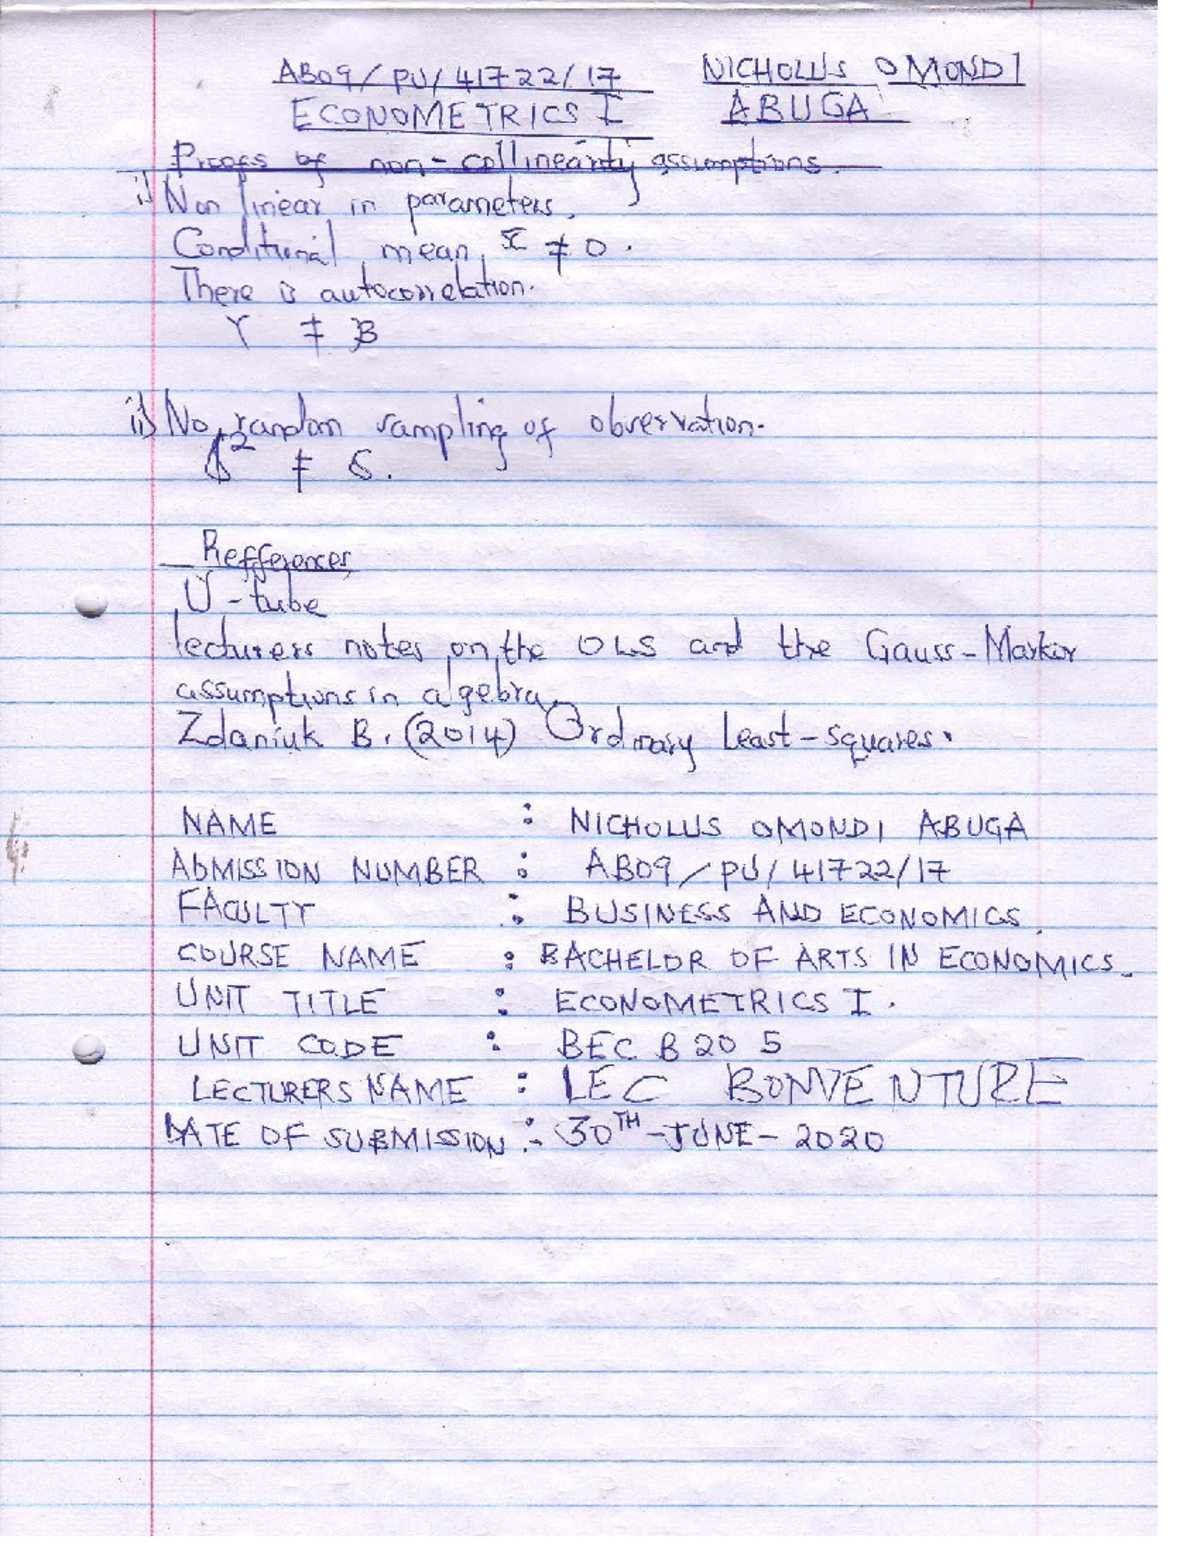 AB09/PU/41722/17 NICHOLUS OMONDI
ECONOMETRICS I ABUGA
Proofs of non-collinearity assumptions.
i) Non linear in parameters.
Conditional mean, x̄ ≠ 0.
There is autocorrelation.
Y ≠ B
ii) No random sampling of observation.
≠ 6.
Refferences
U-tube
lecturers notes on the OLS and the Gauss-Markov
assumptions in algebra.
Zdaniuk B. (2014) Ordinary Least-squares.
NAME : NICHOLUS OMONDI ABUGA
ADMISSION NUMBER : AB09/PU/41722/17
FACULTY : BUSINESS AND ECONOMICS
COURSE NAME : BACHELOR OF ARTS IN ECONOMICS.
UNIT TITLE : ECONOMETRICS I.
UNIT CODE : BEC B 205
LECTURERS NAME : LEC BONVENTURE
DATE OF SUBMISSION : 30TH-JUNE-2020